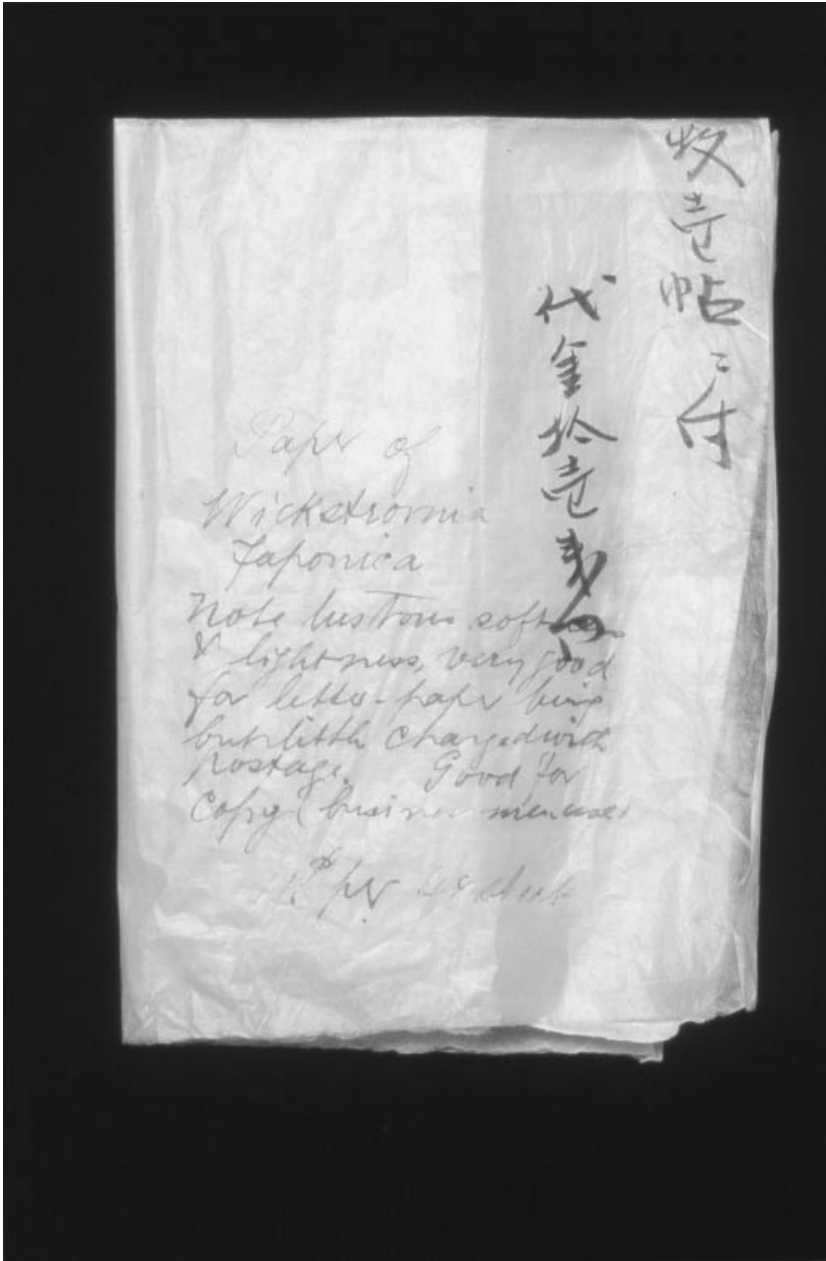 壱帖ニ付
代金拾壱
Paper of
Wickstroemia
Japonica
Note lustrous softness
& lightness, very good
for letter-paper being
but little charged with
postage. Good for
Copy (business men use)
per 48 sheets